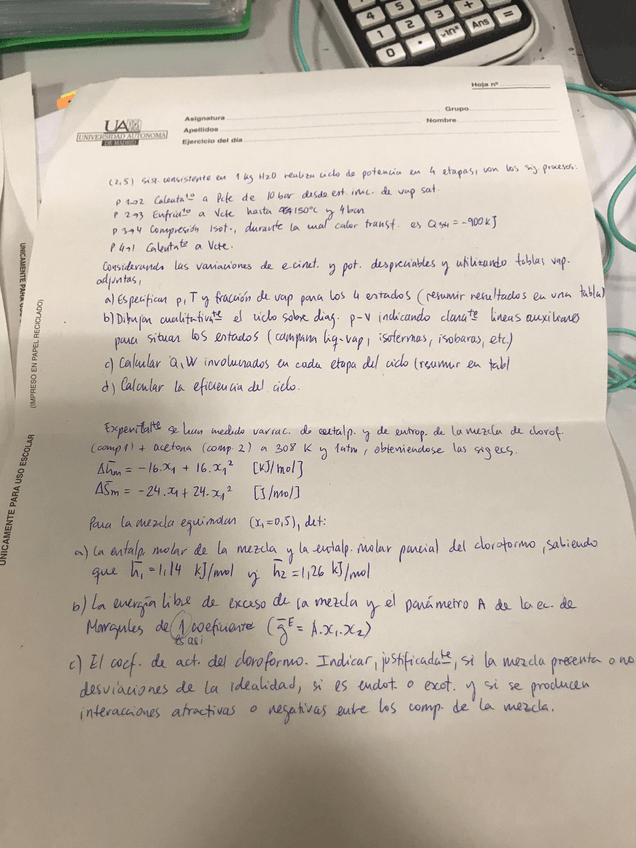 Hoja nº
UAM
UNIVERSIDAD AUTONOMA
DE MADRID
Asignatura
Grupo
Apellidos
Nombre
Ejercicio del día
(2,5) Sist. consistente en 1 kg H2O realiza ciclo de potencia en 4 etapas, con los sig procesos:
P 1→2 Calentaᵗᵒ a Pcte de 10 bar desde est. inic. de vap sat.
P 2→3 Enfriaᵗᵒ a Vcte hasta 150°C y 4 bar
P 3→4 Compresión Isot., durante la cual calor transf. es Q₃₄ = -900 kJ
P 4→1 Calentaᵗᵒ a Vcte.
Considerando las variaciones de e.cinet. y pot. despreciables y utilizando tablas vap.
adjuntas,
a) Especifican p, T y fracción de vap para los 4 estados (resumir resultados en una tabla)
b) Dibujan cualitativaᵗᵉ el ciclo sobre diag. p-v indicando claraᵗᵉ lineas auxiliares
para situar los estados (campana liq-vap, isotermas, isobaras, etc.)
c) Calcular Q, W involucrados en cada etapa del ciclo (resumir en tabl
d) Calcular la eficiencia del ciclo.
Experiᵗᵃˡᵗᵉ se han medido variac. de entalp. y de entrop. de la mezcla de clorof.
(comp 1) + acetona (comp. 2) a 308 K y 1 atm, obteniendose las sig ecs.
Δh̄m = -16.x₁ + 16.x₁² [kJ/mol]
ΔS̄m = -24.x₁ + 24.x₁² [J/mol]
Para la mezcla equimolar (x₁=0,5), det:
a) La entalp. molar de la mezcla y la entalp. molar parcial del cloroformo, sabiendo
que h̄₁ = 1,14 kJ/mol y h̄₂ = 1,26 kJ/mol
b) La energía libre de exceso de la mezcla y el parámetro A de la ec. de
Margules de 1 coeficiente (ḡᴱ = A.x₁.x₂)
es asi
c) El coef. de act. del cloroformo. Indicar, justificadaᵗᵉ, si la mezcla presenta o no
desviaciones de la idealidad, si es endot. o exot. y si se producen
interacciones atractivas o negativas entre los comp. de la mezcla.
UNICAMENTE PARA USO ESCOLAR
(IMPRESO EN PAPEL RECICLADO)
UNICAMENTE PARA
4
5
6
1
2
3
Ans
=
0